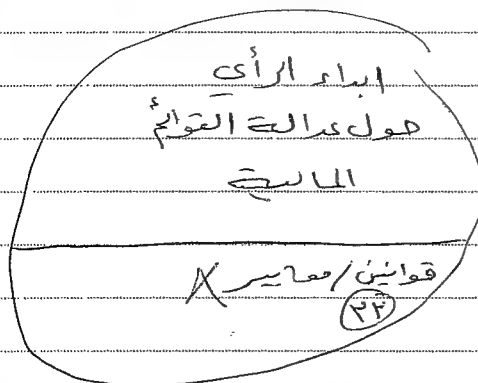 ابداء الرأي
حول عدالة القوائم
المالية
قوانين / معايير X
٣٢